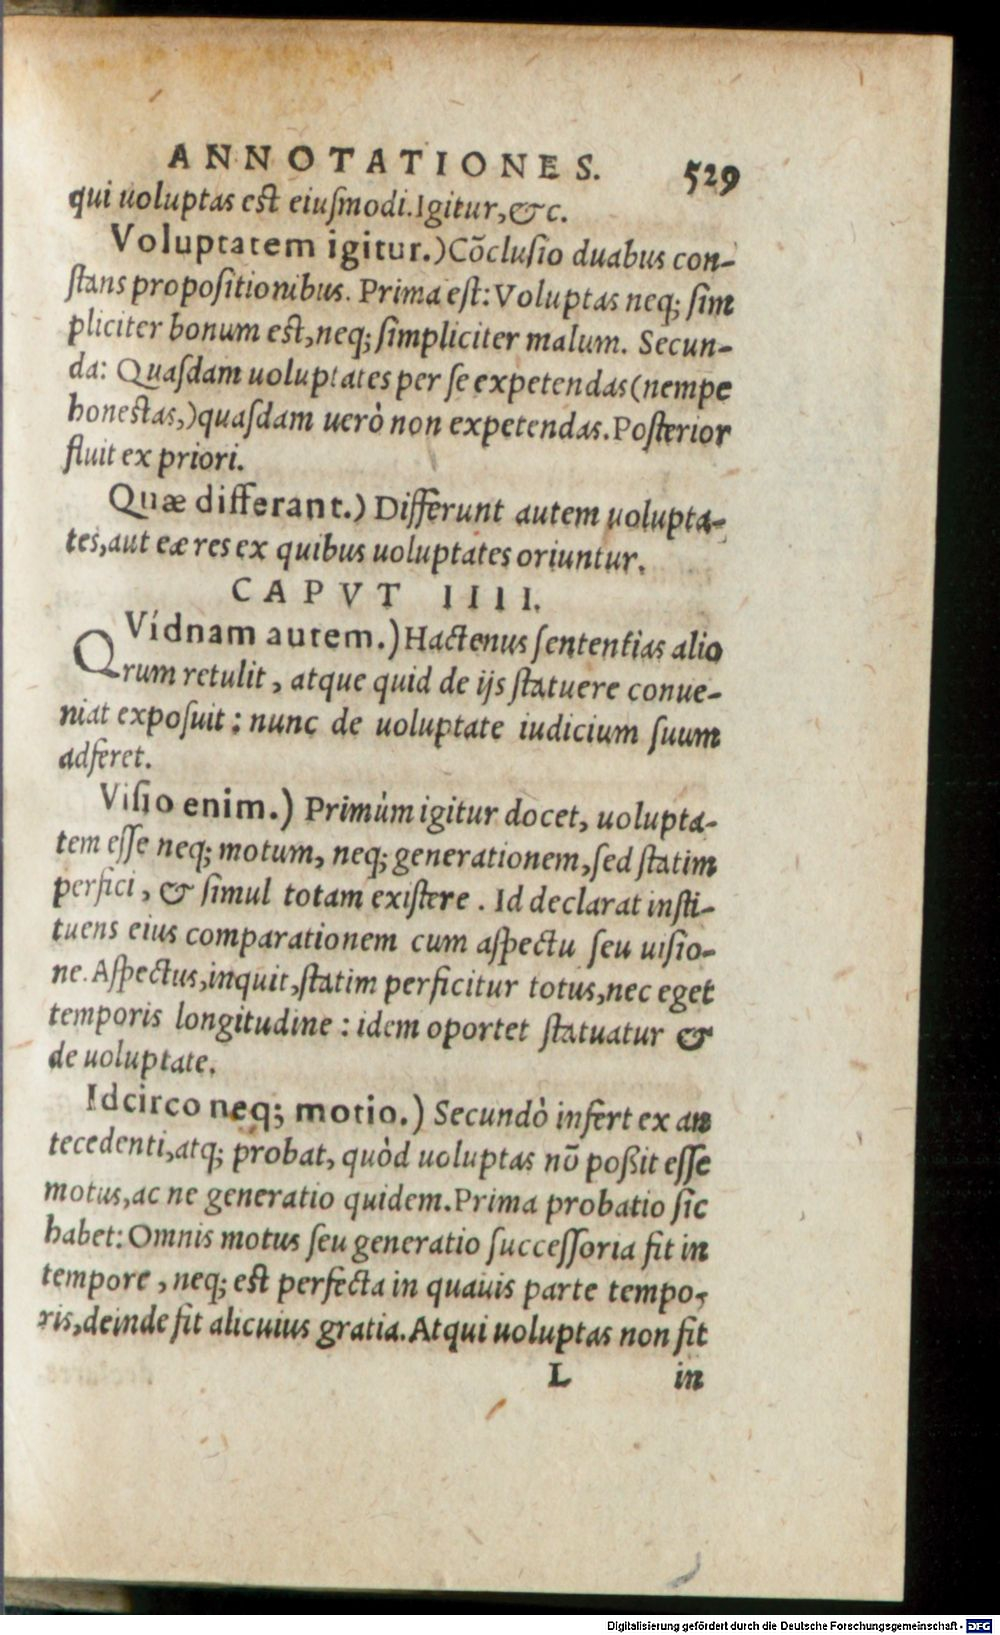 ANNOTATIONES. 529
qui uoluptas est eiuſmodi.Igitur,&c.
Voluptatem igitur.)Cōcluſio duabus con-
ſtans propoſitionibus. Prima eſt:Voluptas neq; ſim
pliciter bonum est,neq; ſimpliciter malum. Secun-
da: Quaſdam uoluptates per ſe expetendas(nempe
honeſtas,)quaſdam uerò non expetendas.Poſterior
fluit ex priori.
Quæ differant.) Differunt autem uolupta-
tes,aut eæ res ex quibus uoluptates oriuntur.
CAPVT IIII.
QVídnam autem.)Hactenus ſententias alio
rum retulit, atque quid de ijs ſtatuere conue-
niat expoſuit: nunc de uoluptate iudicium ſuum
adferet.
Viſio enim.) Primùm igitur docet, uolupta-
tem eſſe neq; motum, neq; generationem,ſed ſtatim
perfici, & ſimul totam exiſtere. Id declarat inſti-
tuens eius comparationem cum aſpectu ſeu uiſio-
ne. Aſpectus,inquit,ſtatim perficitur totus,nec eget
temporis longitudine: idem oportet ſtatuatur &
de uoluptate.
Idcirco neq; motio.) Secundò infert ex an
tecedenti,atq; probat, quòd uoluptas nō poßit eſſe
motus,ac ne generatio quidem.Prima probatio ſic
habet:Omnis motus ſeu generatio ſucceſſoria fit in
tempore, neq; est perfecta in quauis parte tempo-
ris,deinde fit alicuius gratia.Atqui uoluptas non fit
L in
Digitalisierung gefördert durch die Deutsche Forschungsgemeinschaft - DFG